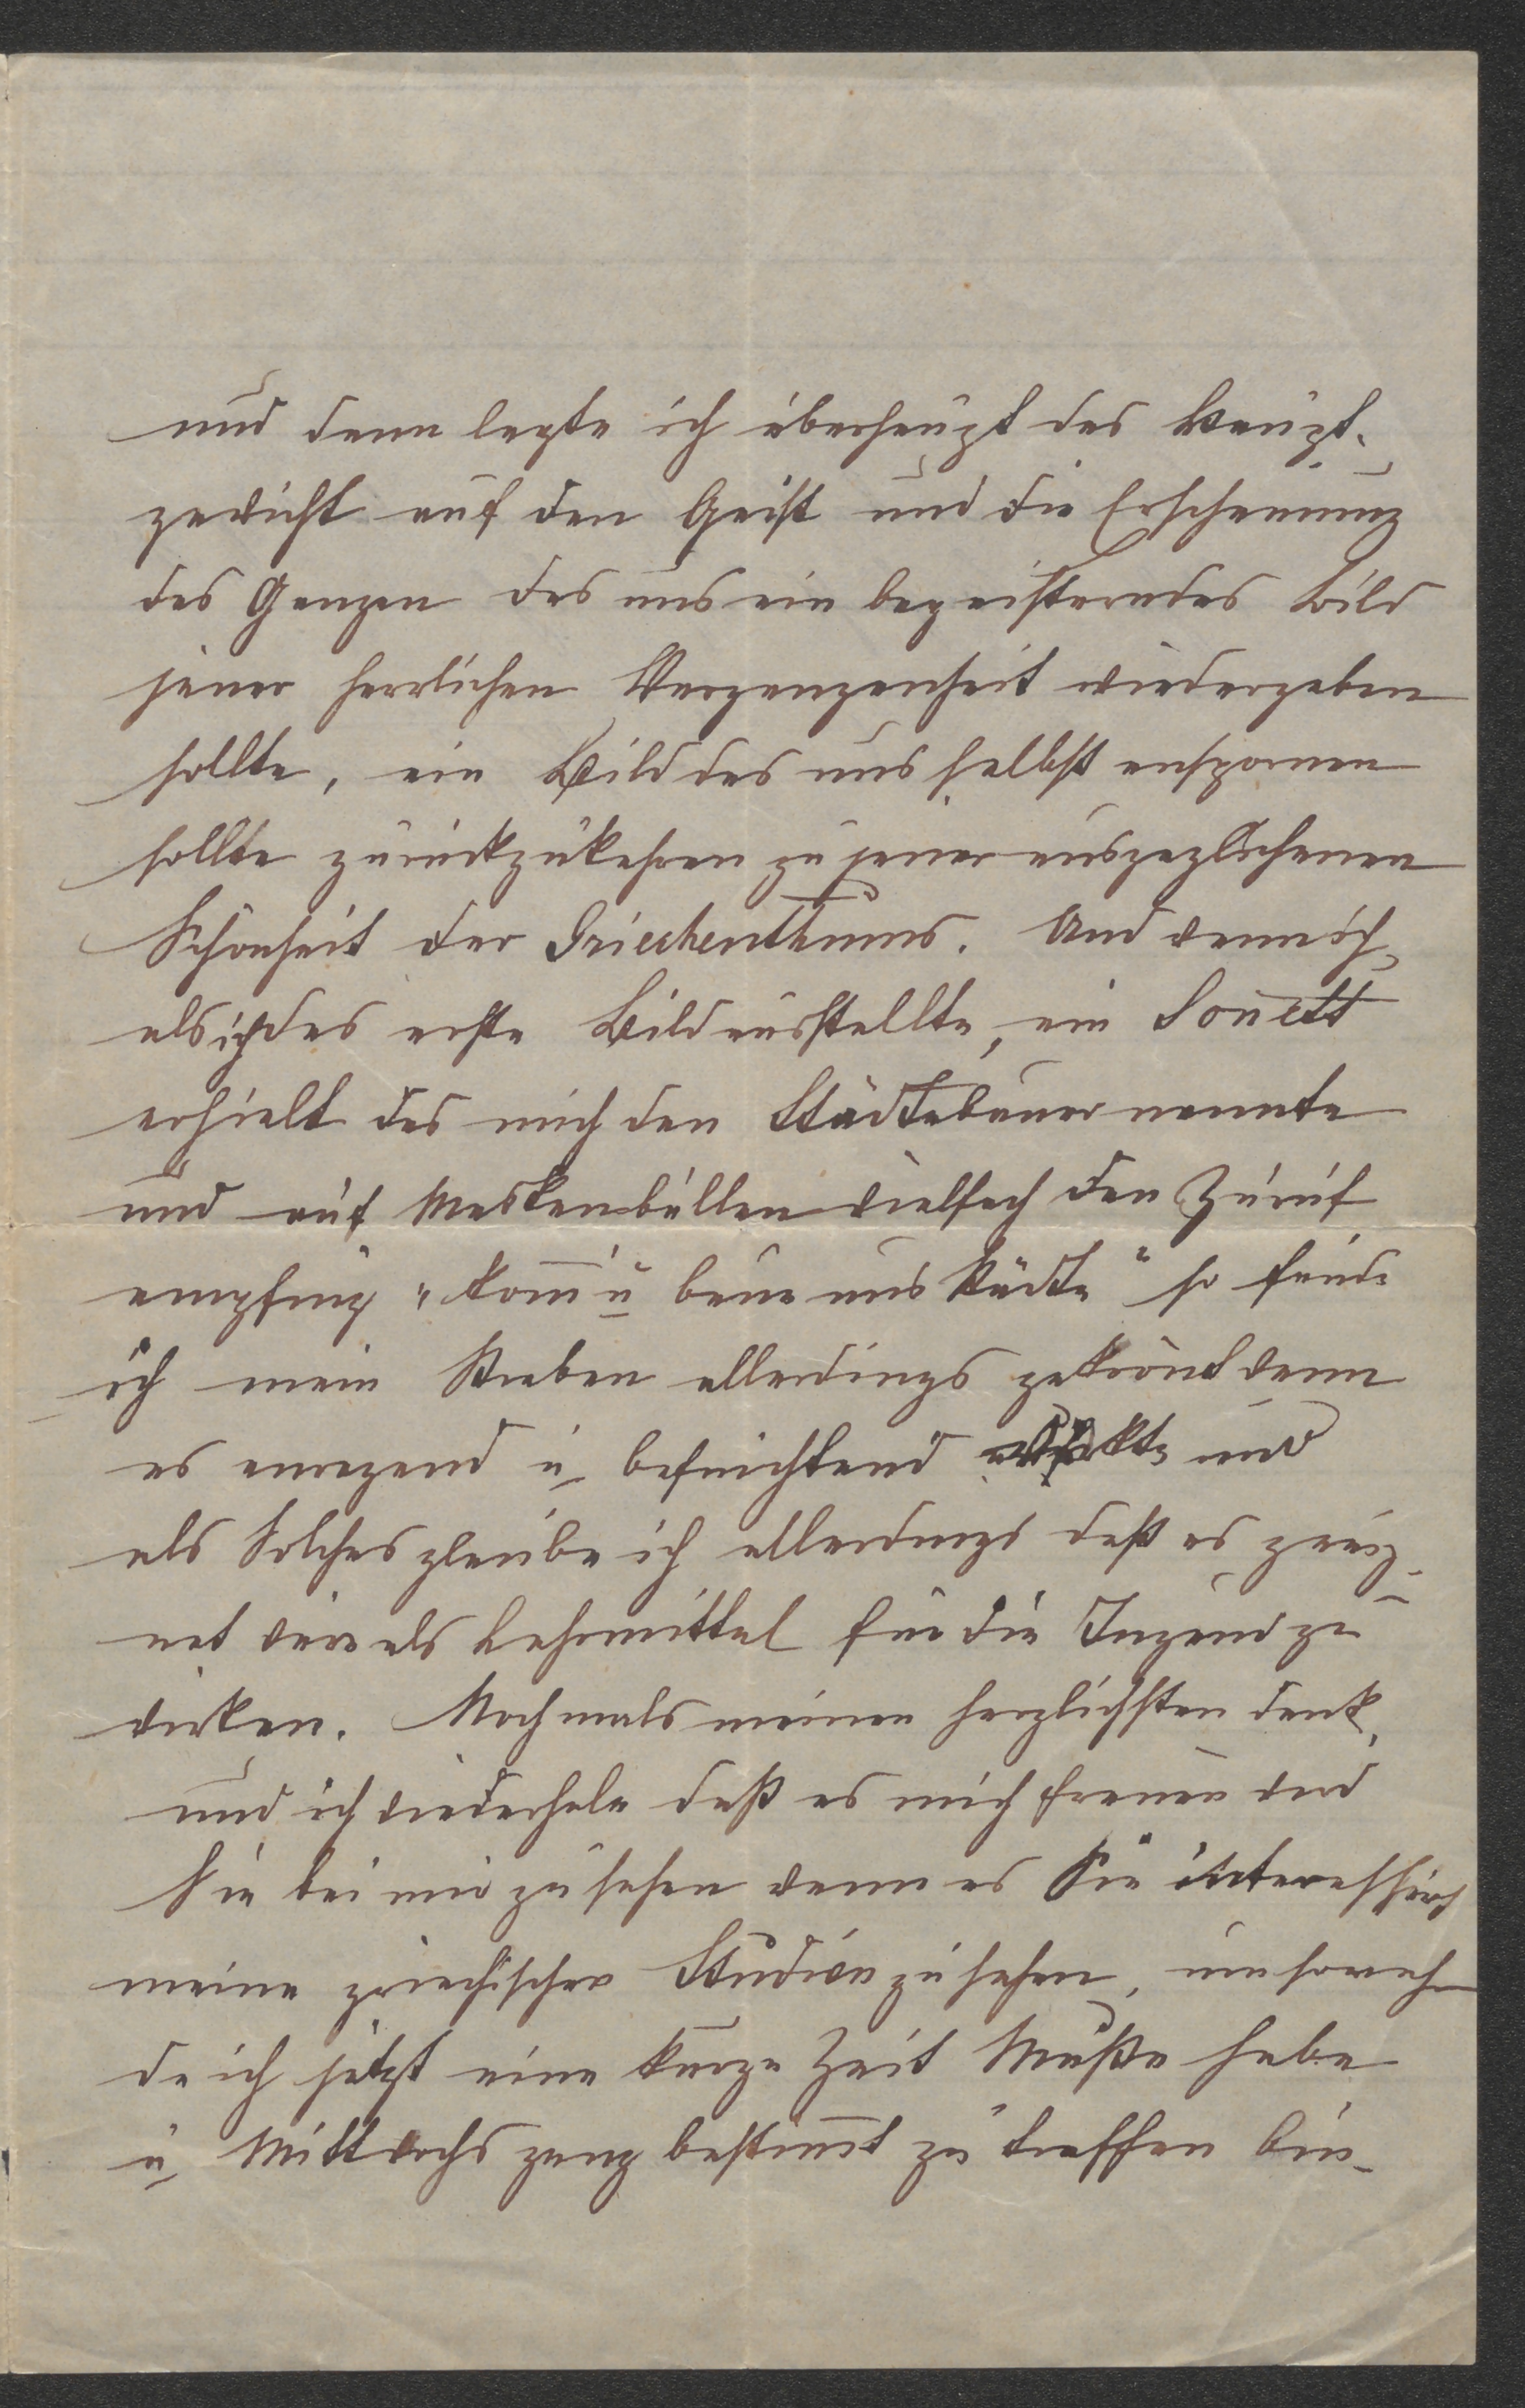 und dann legte ich überhaupt das Haupt-
gewicht auf den Geist und die Erscheinung
des Ganzen das uns ein begeisterndes Bild
jener herrlichen Vergangenheit wiedergeben
sollte, ein Bild das uns selbst anspornen
sollte zurückzukehren zu jener ausgeglichenen
Schönheit der Griechenthums. Und wenn ich,
als ich das erste Bild ausstellte, ein Sonett
erhielt das mich den Städtebauer nannte
und auf Maskenbällen vielfach den Zuruf
empfing „kom̄ u baue uns Städte“ so finde
ich mein Streben allerdings gekrönt denn
es anregend u befruchtend wirkte und
als Solches glaube ich allerdings daß es geeig-
net wäre als Lehrmittel für die Jugend zu
wirken. Nochmals meinen herzlichsten Dank,
und ich wiederhole daß es mich freuen wird
Sie bei mir zu sehen wenn es Sie interessirt
meine griechischen Studien zu sehen, umsomehr
da ich jetzt eine kurze Zeit Muße habe
u Mittwochs ganz bestim̄t zu treffen bin.